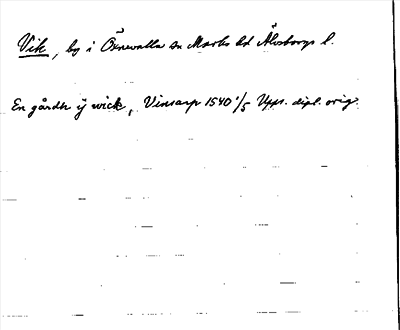 Vik, by i Öxnevalla sn Marks hd Älvsborgs l.
En gårdh ÿ wick, Vinsarp 1540 4/5 Upps. dipl. orig.